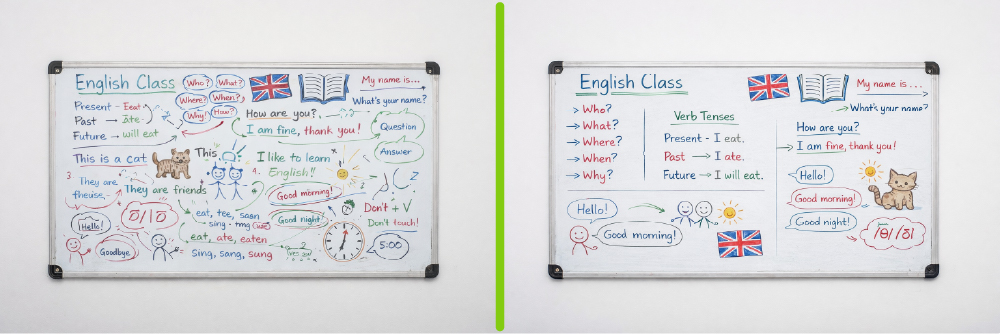 English Class
Who?
What?
Where?
When?
Why!
How?
My name is...
What's your name?
Present - Eeat
Past → āte
Future → will eat
How are you?,
I am fine, thank you!
Question
Answer
This is a cat
This
I like to learn
English!!
3
They are
They are friends
4.
Good morning!
Hello!
Goodbye
eat, tee,
sing -
eat, ate, eaten
Sing, sang, sung
Good night
2
Don't + V
Don't touch!
5:00
English Class
Who?
What?
Where?
When?
Why?
Verb Tenses
Present - I eat.
Past → I ate.
Future → I will eat.
My name is ...
What's your name?
How are you?
I am fine, thank you!
Hello!
Good morning!
Good night!
Hello!
Good morning!